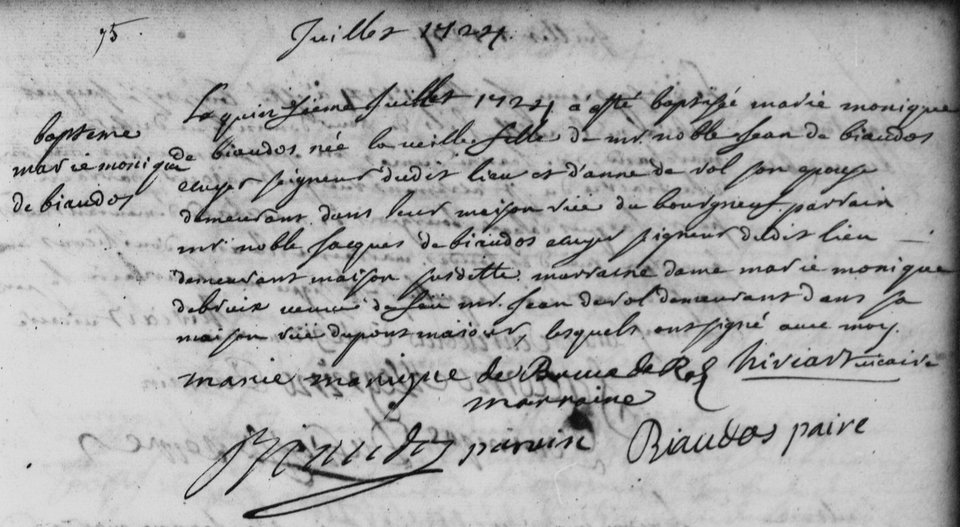 75
Juillet 1724
bapteme
marie monique
de biaudos
Le quinzieme Juillet 1724 a esté baptisé marie monique
de biaudos née la veille fille de mr. noble Jean de biaudos
ecuyer seigneur dudit lieu et d'anne de rol son epouse
demeurant dans leur maison rüe du bourgneuf parrain
mr. noble Jacques de biaudos ecuyer signeur dudit lieu
demeurant maison susditte marraine dame marie monique
veuve de feu mr. Jean de rol demeurant dans sa
maison rüe du pont majour, lesquels ont signé avec moy.
marie monique de de Rol vicaire
marraine
Biaudos parrain Biaudos paire